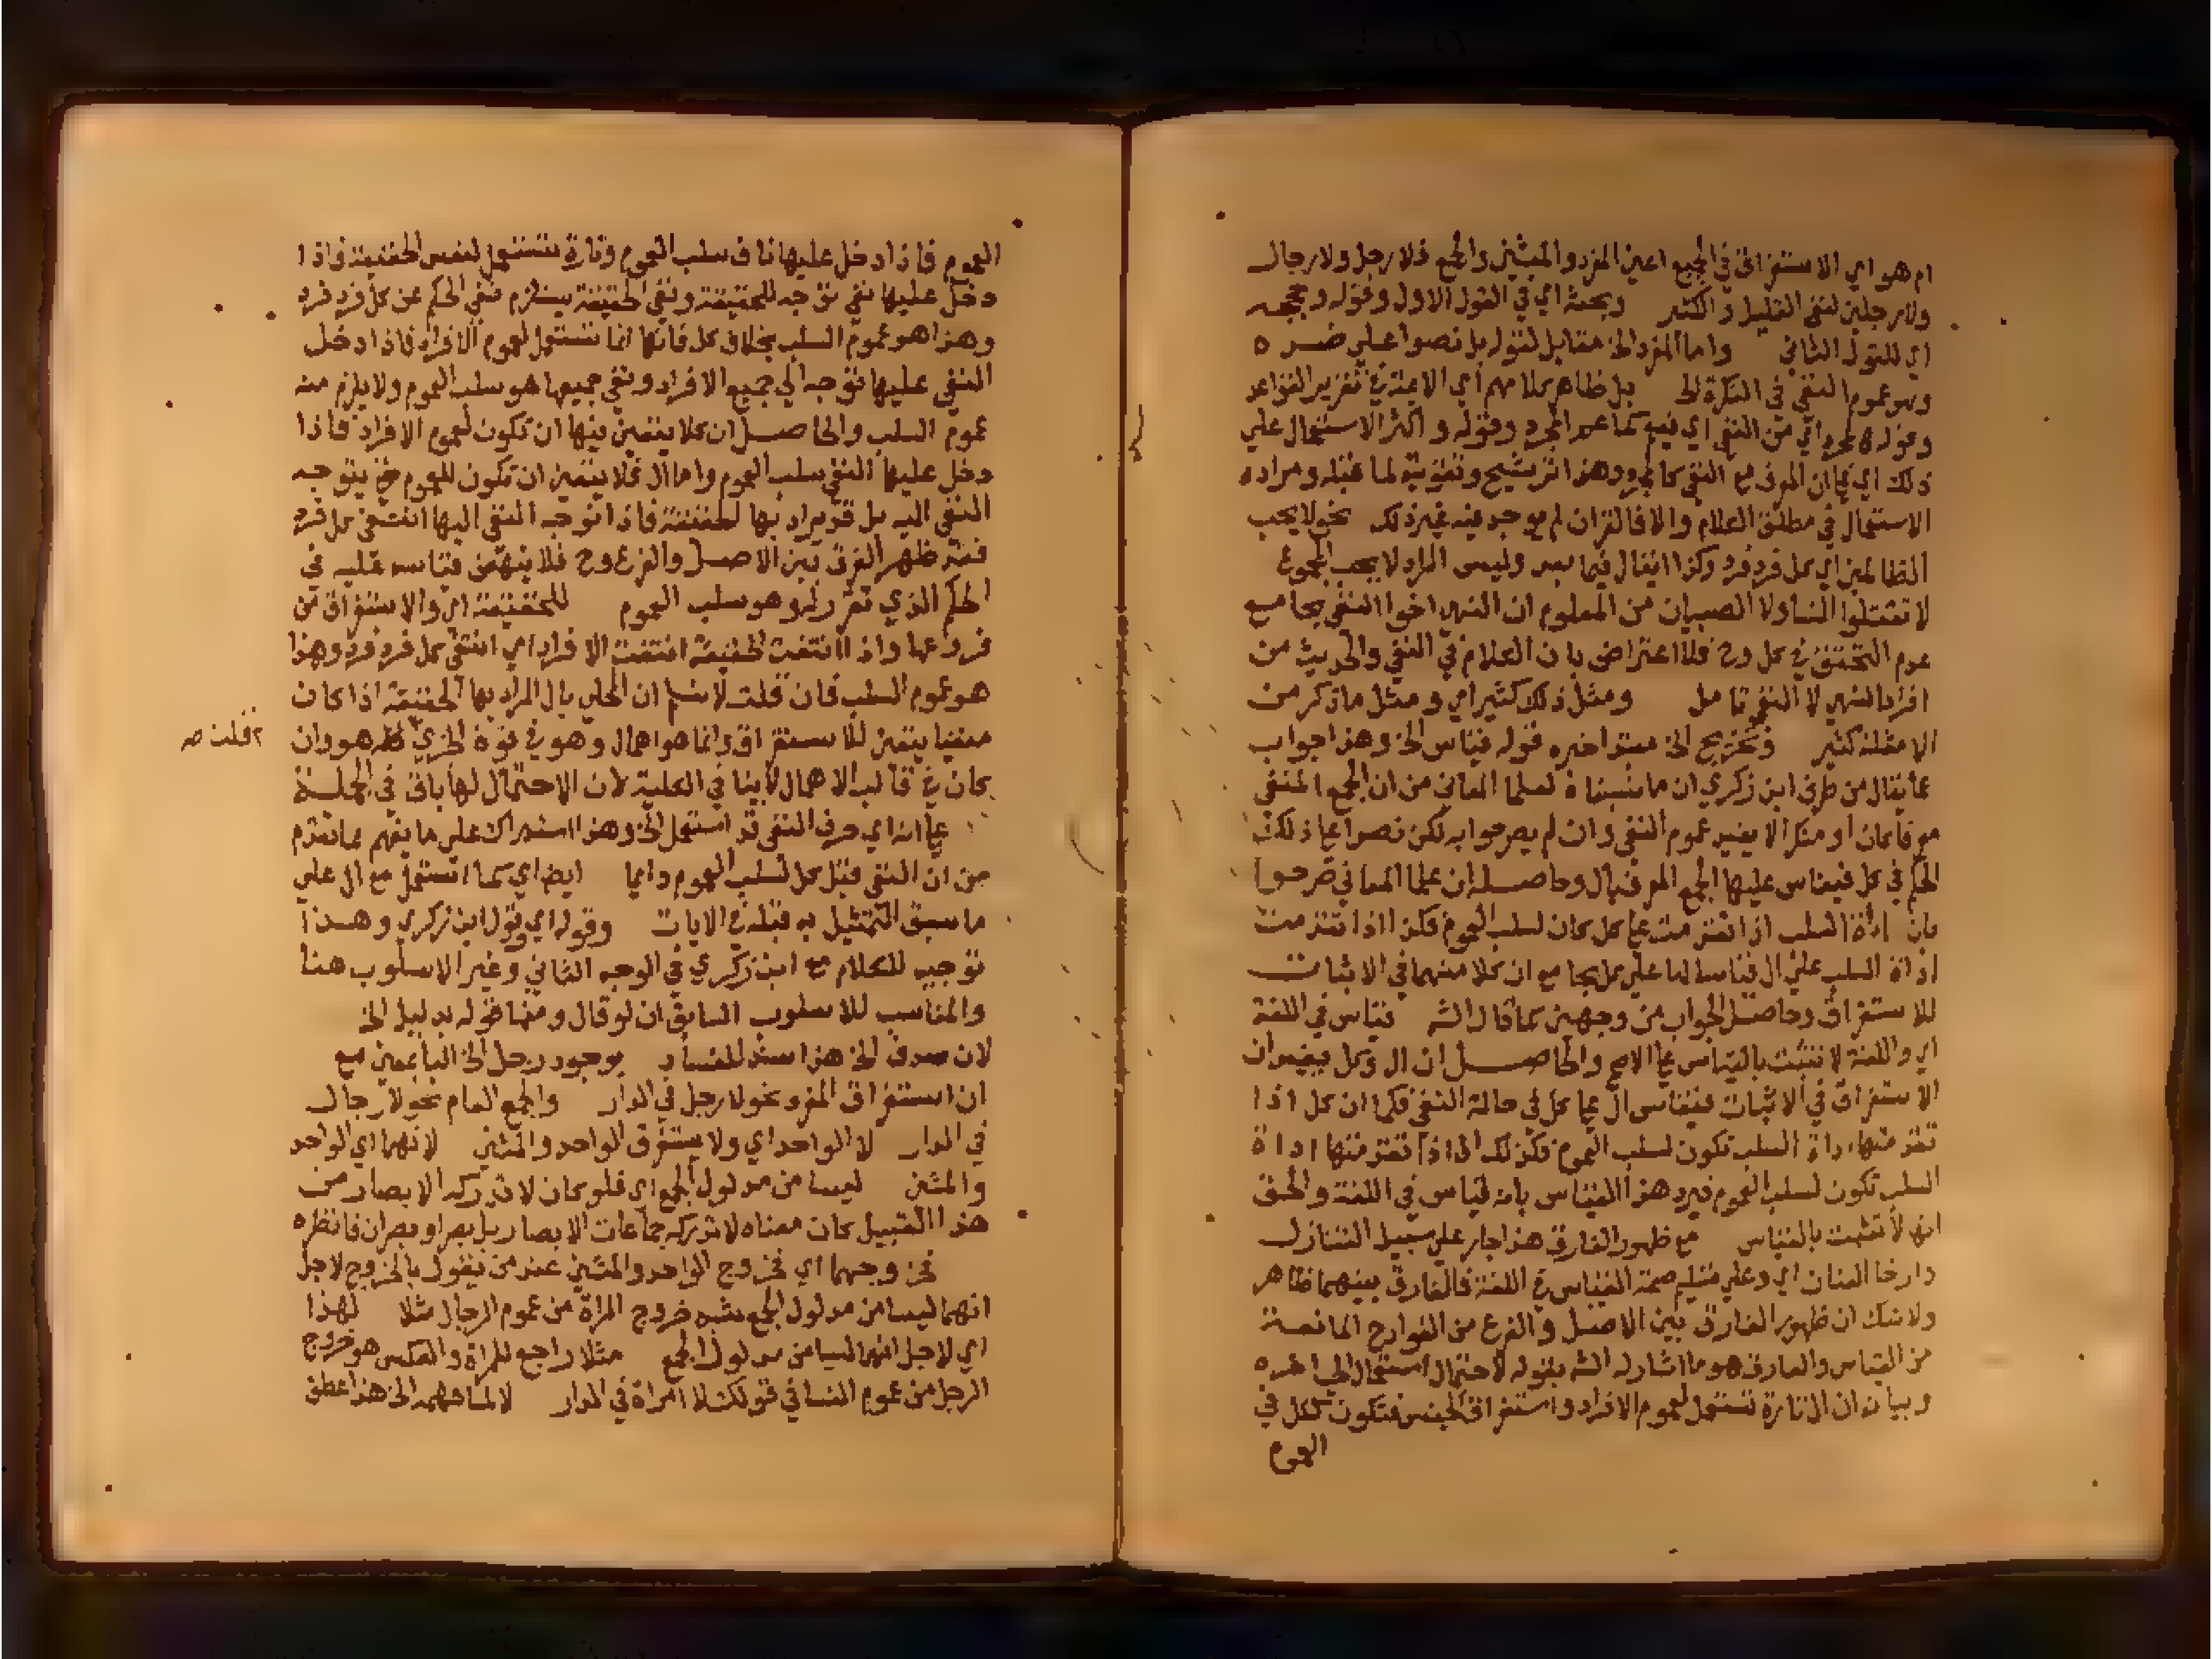 ام هو اي الاستغراق في الجميع اعين المفرد والمثنين والجمع فلا رجل ولا رجال
ولا رجلين لنفي القليل والكثير وبحثه اي في القول الاول وقوله وحججه
اي للقول الثاني واما المفرد الخ مقابل لقوله بل نصوا علي ضده
وهو عموم النفي في النكرة الخ بل ظاهر كلامهم اي الايمة في تقرير القواعد
وقوله اي من النفي اي فيه كما وقوله و اكثر الاستعمال علي
ذلك اي علي ان المعرف مع النفي وهذا ترشيح وتقوية لما قبله ومراده
الاستعمال في مطلق الكلام والا فالقران لم يوجد فيه غير ذلك نحو لا يحب
الظالمين اي كل فرد فرد وكذا يقال فيما بعد وليس المراد لا يحب المجموع
لا تقتلوا النسا ولا الصبيان من المعلوم ان النهي اخوا النفي بجامع
عدم التحقق في كل وح فلا اعتراض بان الكلام في النفي والحديث من
افراد النهي لا النفي تامل ومثل ذلك كثير اي ومثل ما ذكر من
الامثلة كثير وتخريج الخ مبتدا خبره قوله قياس الخ وهذا جواب
عما يقال من طرف ابن زكري ان ما نسبناه لعلما المعاني من ان الجمع المنفي
معرفا كان او منكرا لا يفيد عموم النفي وان لم يصرحوا به لكن نصوا علي ذلك
الحكم في كل فيقاس عليها الجمع المعرف بال وحاصله ان علما المعاني صرحوا
بان اداة السلب اذا تقدمت علي كل كان لسلب العموم فكذا اذا تقدمت
اداة السلب علي ال قياسا لها علي كل بجامع ان كلا منهما في الاثبات
للاستغراق وحاصل الجواب من وجهين كما قال الشه قياس في اللغة
اي واللغة لا تثبت بالقياس علي الاصح والحاصل ان ال وكل يفيدان
الاستغراق في الاثبات فيقاس ال علي كل في حالة النفي فكما ان كل اذا
تقدمتها اداة السلب تكون لسلب العموم فكذلك ال اذا تقدمتها اداة
السلب تكون لسلب العموم فيرد هذا القياس بانه قياس في اللغة والحق
انها لا تثبت بالقياس مع ظهور الفارق هذا جار علي سبيل التنازل
وارخا العنان اي وعلي تسليم صحة القياس في اللغة فالفارق بينهما ظاهر
ولا شك ان ظهور الفارق بين الاصل والفرع من القوادح المانعة
من القياس والفارق هو ما اشار له الشه بقوله لاحتمال استعمال الخ
وبيانه ان ال تارة تستعمل لعموم الافراد واستغراق الجنس فتكون ككل في
العموم
العموم فاذا دخل عليها ناف سلب العموم وتارة تستعمل لنفس الحقيقة فاذا
دخل عليها نفي توجه للحقيقة ونفي الحقيقة يستلزم نفي الحكم عن كل فرد فرد
وهذا هو عموم السلب بخلاف كل فانها انما تستعمل لعموم الافراد فاذا دخل
النفي عليها توجه الي جميع الافراد ونفي جميعها هو سلب العموم ولا يلزم منه
عموم السلب والحاصل ان كلا يتعين فيها ان تكون لعموم الافراد فاذا
دخل عليها النفي سلب العموم واما ال فلا يتعين ان تكون للعموم حتي يتوجه
النفي اليه بل قد يراد بها الحقيقة فاذا توجه النفي اليها انتفي كل فرد
فقد ظهر الفرق بين الاصل والفرع وح فلا ينهض قياسه عليه في
الحكم الذي تقرر له وهو سلب العموم للحقيقة اي والاستغراق من
فروعها واذا انتفت الحقيقة انتفت الافراد اي انتفي كل فرد فرد وهذا
هو عموم السلب فان قلت لا نسلم ان المحلي بال المراد بها الحقيقة اذا كان
منفيا يتعين للاستغراق وانما هو اهمال وهو في قوة الجزي هو وان
٢ قلت صه
كان في قالب الاهمال لا ينافي الكلية لان الاحتمال لها باق في الجملة
علي انه اي حرف النفي قد استعمل الخ وهذا استدراك علي ما يفهم مما تقدم
من ان النفي قبل كل لسلب العموم دايما ايضا اي كما استعمل مع ال علي
ما سبق التمثيل به قبله في الايات وقوله اي وقول ابن زكري وهذا
توجيه للكلام مع ابن زكري في الوجه الثاني وغير الاسلوب هنا
والمناسب للاسلوب السابق ان لو قال ومنها قوله بدليل الخ
لان صدق الخ هذا سند للفساد بوجود رجل الخ البا بمعني مع
ان استغراق المفرد نحو لا رجل في الدار والجمع العام نحو لا رجال
في الدار لا الواحد اي ولا يستغرق الواحد والمثني لانهما اي الواحد
والمثني ليسا من مدلول الجمع اي فلو كان لا تدركه الابصار من
هذا القبيل كان معناه لا تدركه جماعات الابصار بل بصر او بصران فانظره
فخروجهما اي فخروج الواحد والمثني عند من يقول بالخروج لاجل
انهما ليسا من مدلول الجمع يشبه خروج المراة من عموم الرجال مثلا لهذا
اي لاجل انهما ليسا من مدلول الجمع مثلا راجع للمراة والعكس هو خروج
الرجل من عموم النسا في قولك لا امراة في الدار لا لما الخ هذا عطف